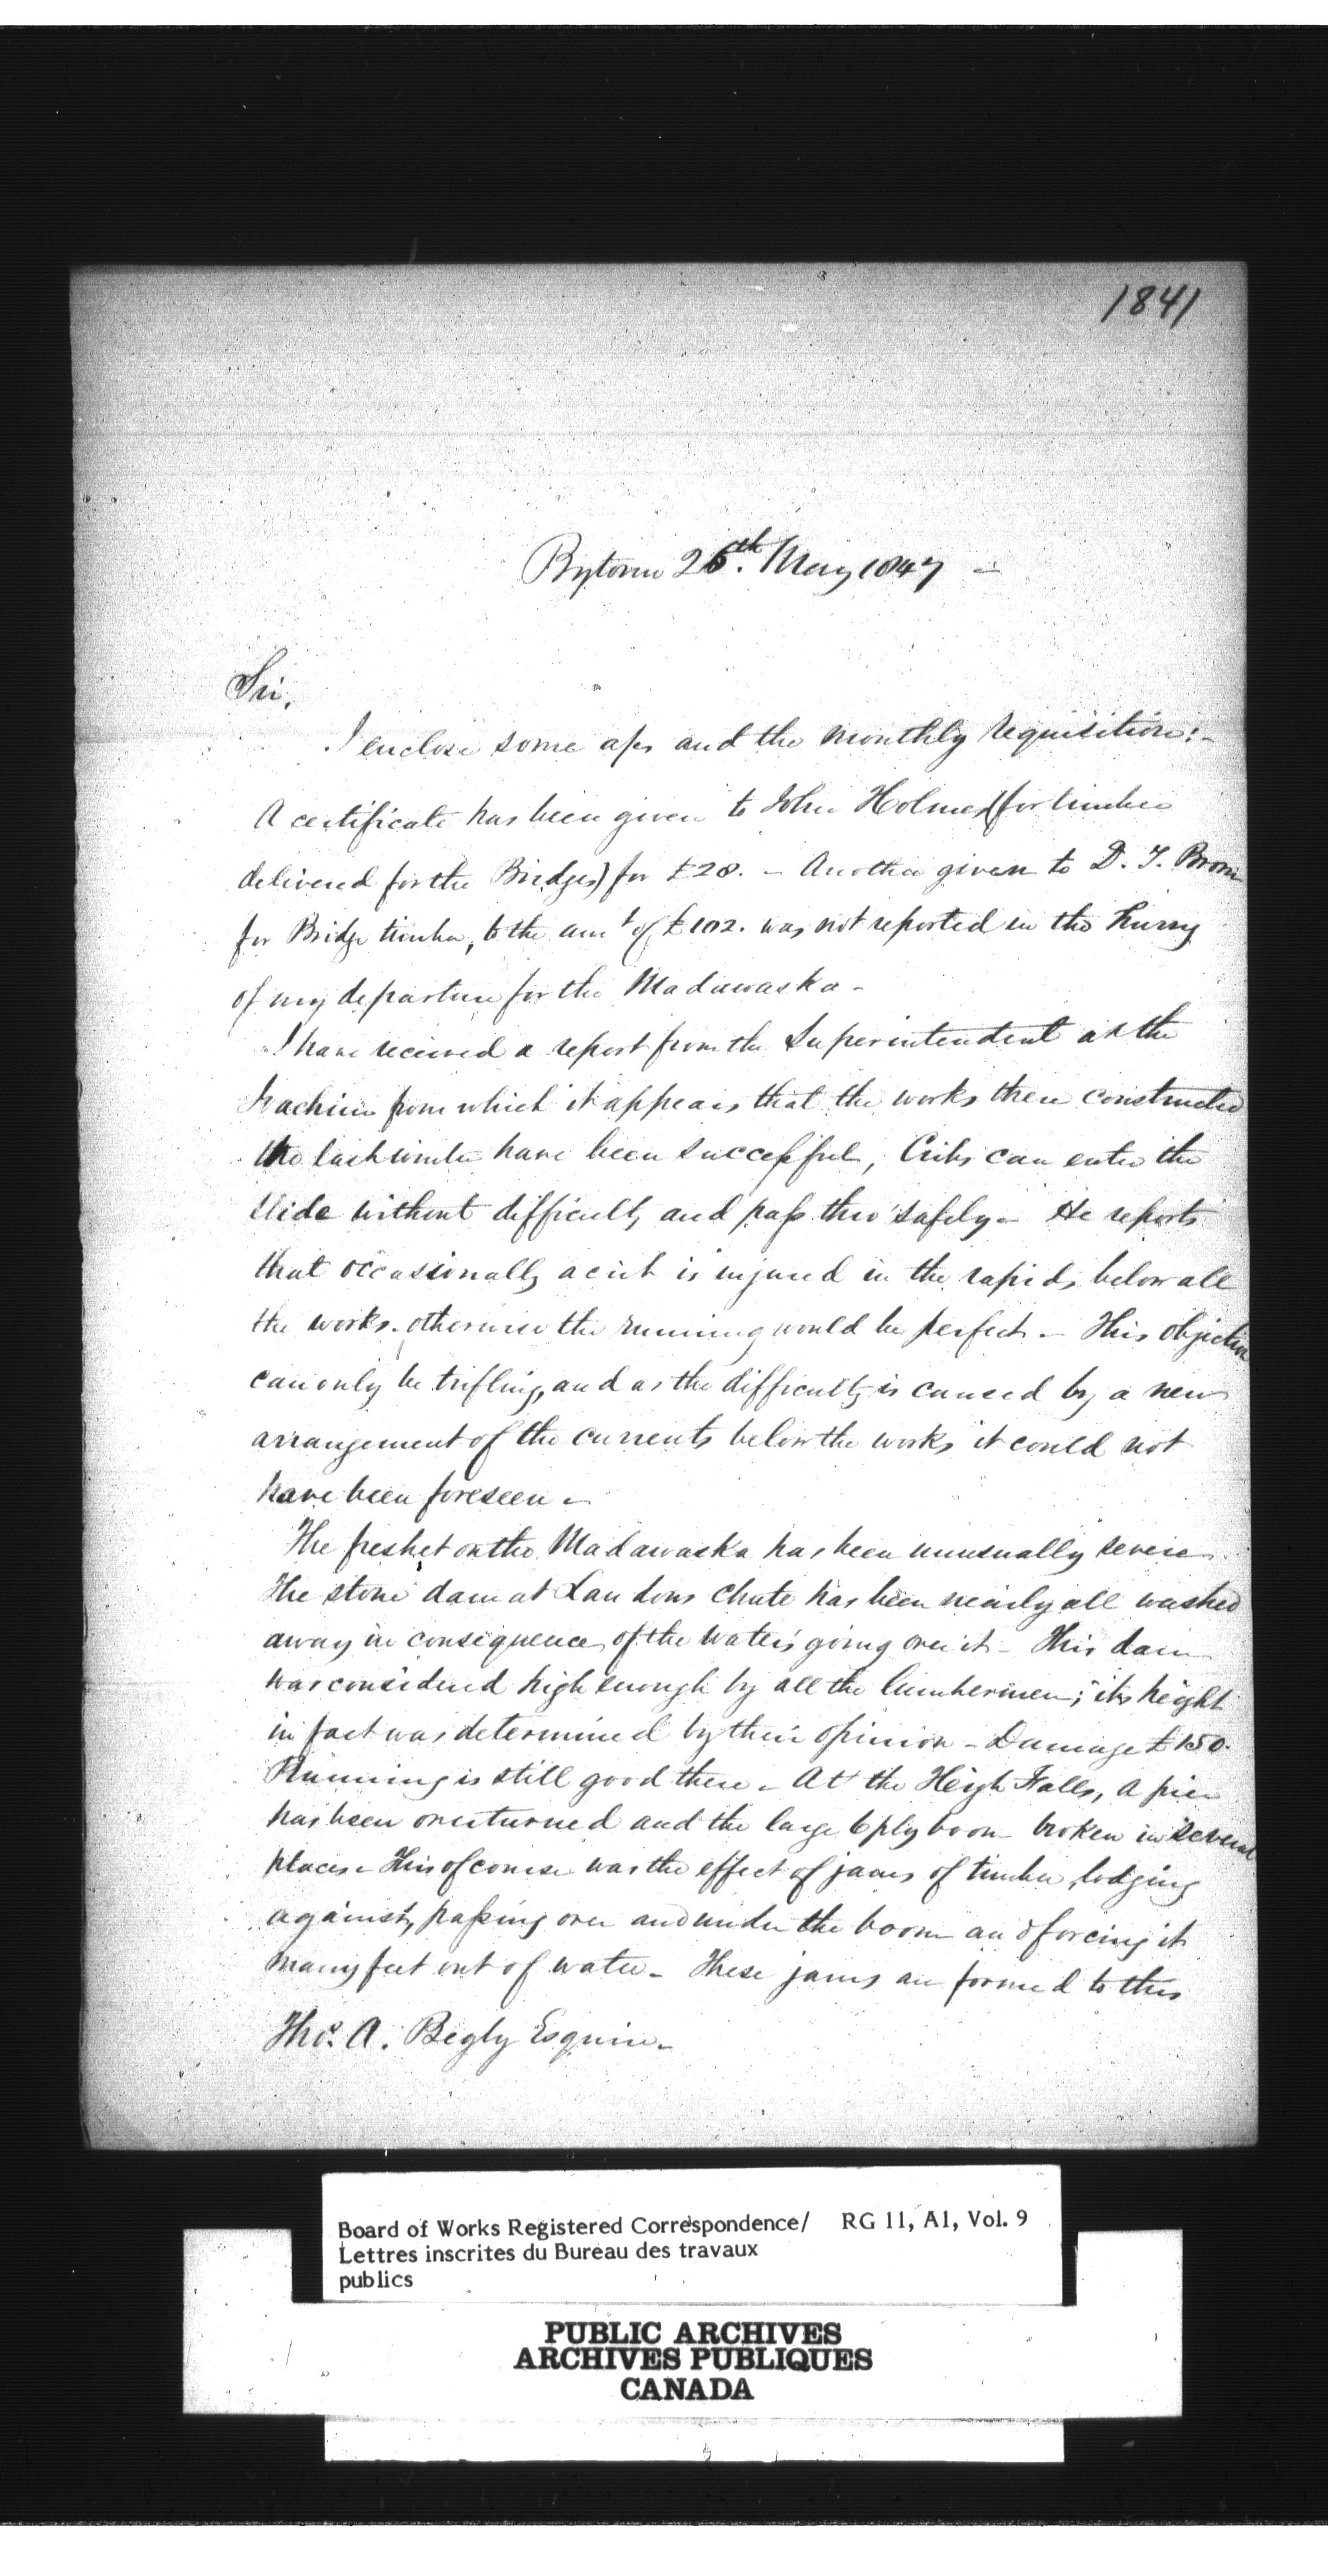 1841
Bytown 26th. May 1847 -
Sir,
I enclose some a/cs and the monthly requisition:-
A certificate has been given to John Holmes (for timber
delivered for the Bridges) for £28. - Another given to D. T. Brown
for Bridge timber, to the amt of £102. was not reported in the hurry
of my departure for the Madawaska -
I have received a report from the Superintendent at the
from which it appears that the works there constructed
the last winter have been successful, Cribs can enter the
slide without difficulty and pass thro' safely - He reports
that occasionally a crib is injured in the rapids below all
the works. otherwise the running would be perfect. - This objection
can only be trifling, and as the difficulty is caused by a new
arrangement of the currents below the works it could not
have been foreseen -
The freshet on the Madawaska has been unusually severe
The stone dam at Landons Chute has been nearly all washed
away in consequence of the water's going over it - This dam
was considered high enough by all the lumbermen; its height
in fact was determined by their opinion - Damage £150.
Running is still good there - At the High Falls, a pier
has been overturned and the large 6 ply boom broken in several
places - This of course was the effect of jams of timber lodging
against, passing over and under the boom and forcing it
many feet out of water - These jams are formed to this
Thos. A. Begly Esquire -
Board of Works Registered Correspondence/ RG 11, A1, Vol. 9
Lettres inscrites du Bureau des travaux
publics
PUBLIC ARCHIVES
ARCHIVES PUBLIQUES
CANADA